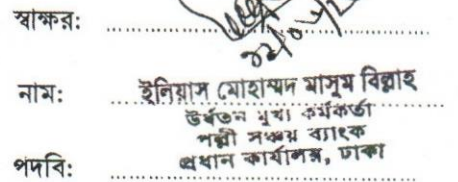 স্বাক্ষর:
নাম: ইনিয়াস মোহাম্মদ মাসুম বিল্লাহ
উর্ধতন মুখ্য কর্মকর্তা
পল্লী সঞ্চয় ব্যাংক
পদবি: প্রধান কার্যালয়, ঢাকা